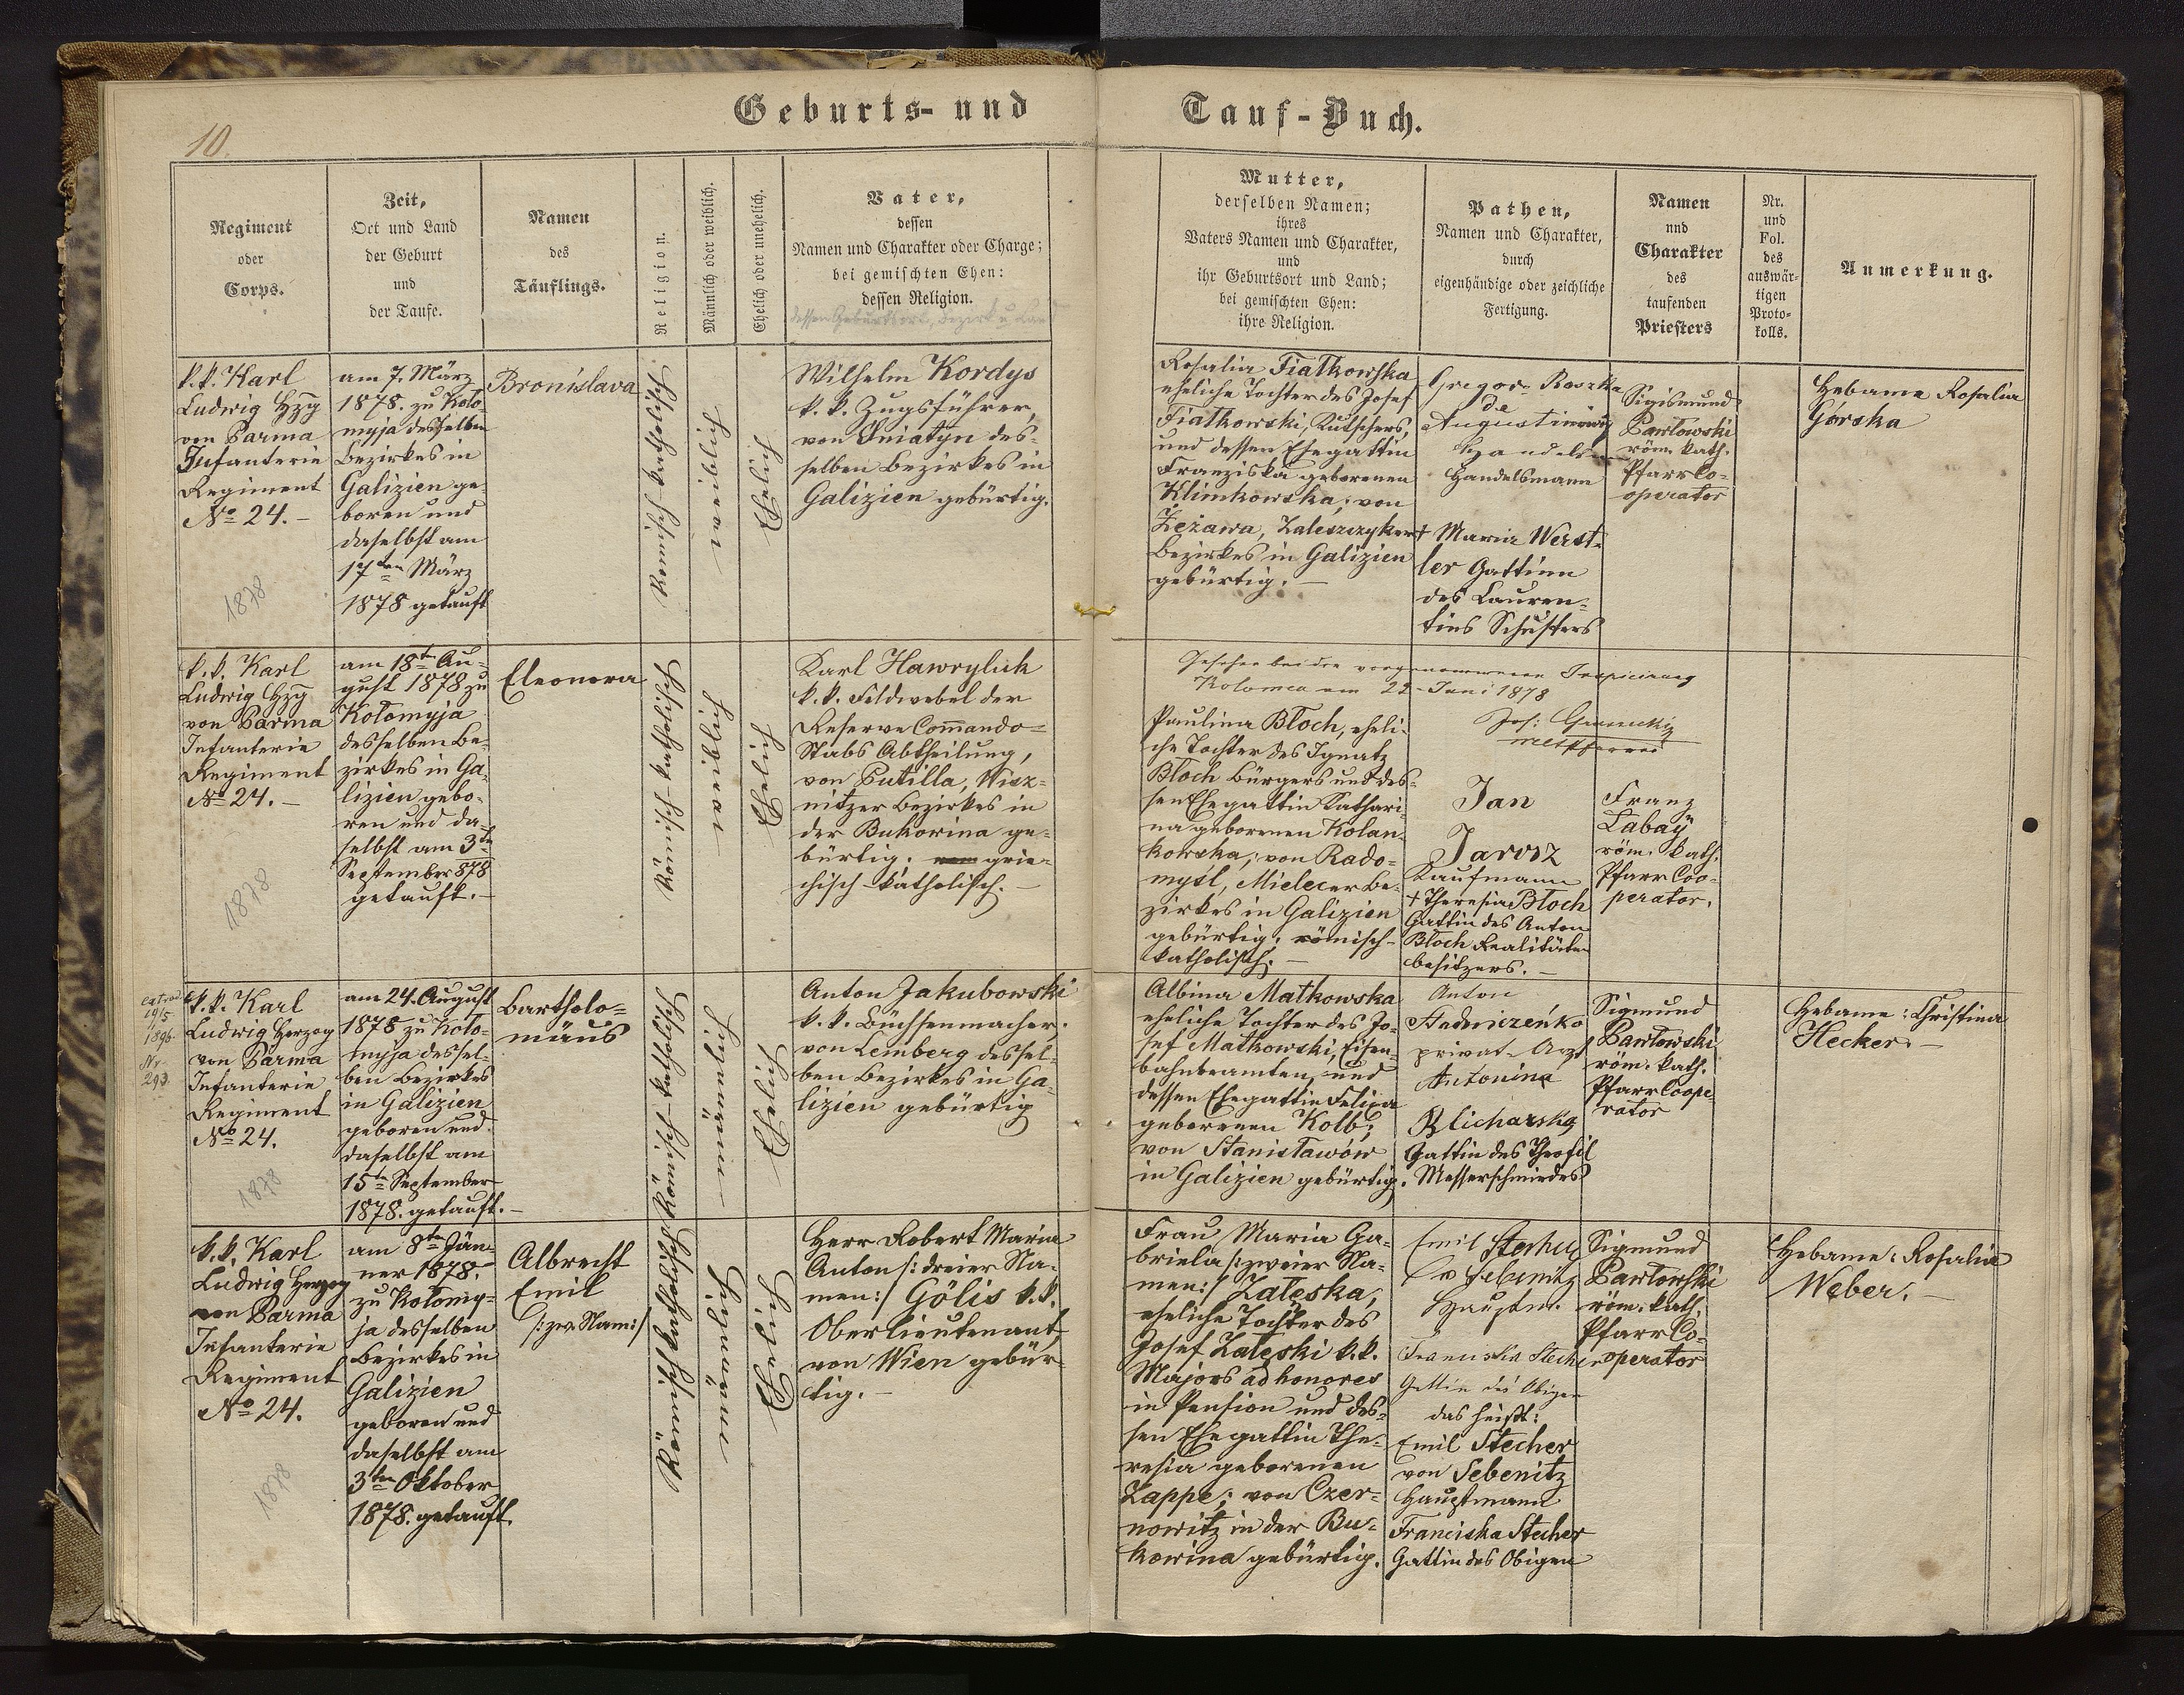 10.
Geburts- und Tauf-Buch.
Regiment
oder
Corps.
Zeit,
Ort und Land
der Geburt
und
der Taufe.
Namen
des
Täuflings.
Religion.
Männlich oder weiblich.
Ehelich oder unehelich.
Vater,
dessen
Namen und Charakter oder Charge;
bei gemischten Ehen:
dessen Religion.
dessen Geburtsort, Bezirk u. Land
Mutter,
derselben Namen;
ihres
Vaters Namen und Charakter,
und
ihr Geburtsort und Land;
bei gemischten Ehen:
ihre Religion.
Pathen,
Namen und Charakter,
durch
eigenhändige oder zeichliche
Fertigung.
Namen
und
Charakter
des
taufenden
Priesters
Nr.
und
Fol.
des
auswär-
tigen
Proto-
kolls.
Anmerkung.
k.k. Karl
Ludwig Hzg
von Parma
Infanterie
Regiment
No 24. –
1878
am 7. März
1878. zu Koło-
myja desselben
Bezirkes in
Galizien ge-
boren und
daselbst am
17ten März
1878 getauft
Bronislava
Römisch katholisch
weiblich
Ehelich
Wilhelm Kordys
k.k. Zugsführer,
von Sniatyn des-
selben Bezirkes in
Galizien gebürtig.
Rosalia Fiałkowska
eheliche Tochter des Josef
Fiałkowski, Kutschers,
und dessen Ehegattin
Franziska geborenen
Klimkowska; von
Zeżawa, Zaleszczyker
Bezirkes in Galizien
gebürtig. –
Gregor Roszka
de
Handelsmann
+ Maria Werst-
ler Gattinn
des Lauren-
tius Schusters
Sigismund
Pawłowski
röm. kath.
Pfarr Co-
operator
Hebame Rosalia
Górska
k.k. Karl
Ludwig Hzg
von Parma
Infanterie
Regiment
No 24. –
1878
am 18ten Au-
gust 1878 zu
Kołomyja
desselben Be-
zirkes in Ga-
lizien gebo-
ren und da-
selbst am 3ten
September 878
getauft. –
Eleonora
Römisch-katholisch
weiblich
Ehelich
Karl Hawryluk
k.k. Feldwebel der
Reserve Com̄ando-
Stabs Abtheilung,
von Putilla, Wisz-
nitzer Bezirkes in
der Bukowina ge-
bürtig. rom grie-
chisch-katholisch. –
Gesehen bei der vorgenommenen
Kolomea am 22. Juni 1878
Paulina Błoch, eheli-
che Tochter des Ignatz
Błoch Bürgers und des-
sen Ehegattin Kathari-
na geborenen Kolan-
kowska; von Rado-
mysl, Mielecer Be-
zirkes in Galizien
gebürtig; römisch-
katholisch. –
Jan
Jarosz
Kaufmann
+ Theresia Błoch
Gattin des Anton
Błoch Realitäten
besitzers. –
Franz
Łabaÿ
röm. kath.
Pfarr Coo-
perator.
extrad.
19/5
1896.
Nr.
293
k.k. Karl
Ludwig Herzog
von Parma
Infanterie
Regiment
No 24.
1878
am 24. August
1878 zu Koło-
myja dessel-
ben Bezirkes
in Galizien
geboren und
daselbst am
15ten September
1878. getauft. –
Bartholo-
mäus
Römisch-katholisch
männlich
Ehelich
Anton Jakubowski
k.k. Büchsenmacher.
von Lemberg dessel-
ben Bezirkes in Ga-
lizien gebürtig
Albina Małkowska
eheliche Tochter des Jo-
sef Małkowski, Eisen-
bahnbeamten, und
dessen Ehegattin Felixa
geborenen Kolb;
von Stanisławów
in Galizien gebürtig.
Anton
privat-Arzt
Antonina
Blicharska
Gattin des Theofil
Messerschmiedes
Sigmund
Pawłowski
röm. kath.
Pfarr Coope-
rator
Hebame: Christina
Hecker. –
k.k. Karl
Ludwig Herzog
von Parma
Infanterie
Regiment
No 24.
1878
am 8ten Jän-
ner 1878.
zu Kołomy-
ja desselben
Bezirkes in
Galizien
geboren und
daselbst am
3ten Oktober
1878. getauft.
Albrecht
Emil
/:zw. Nam:/
Römisch katholisch
männlich
Ehelich
Herr Robert Maria
Anton /:dreier Na-
men:/ Gölis k.k.
Oberlieutenant,
von Wien gebür-
tig. –
Frau Maria Ga-
briela /:zweier Na-
men:/ Załeska,
eheliche Tochter des
Josef Załeski k.k.
Majors ad honores
in Pension und des-
sen Ehegattin The-
resia geborenen
Zappe; von Czer-
nowitz in der Bu-
kowina gebürtig.
Emil Stecher
v Sebenitz
Hauptm.
Franciska Stecher
Gattin des Obigen
das heißt:
Emil Stecher
von Sebenitz
Hauptmann
Franciska Stecher
Gattin des Obigen
Sigmund
Pawłowski
röm. kath.
Pfarr Co-
operator
Hebame: Rosalia
Weber. –